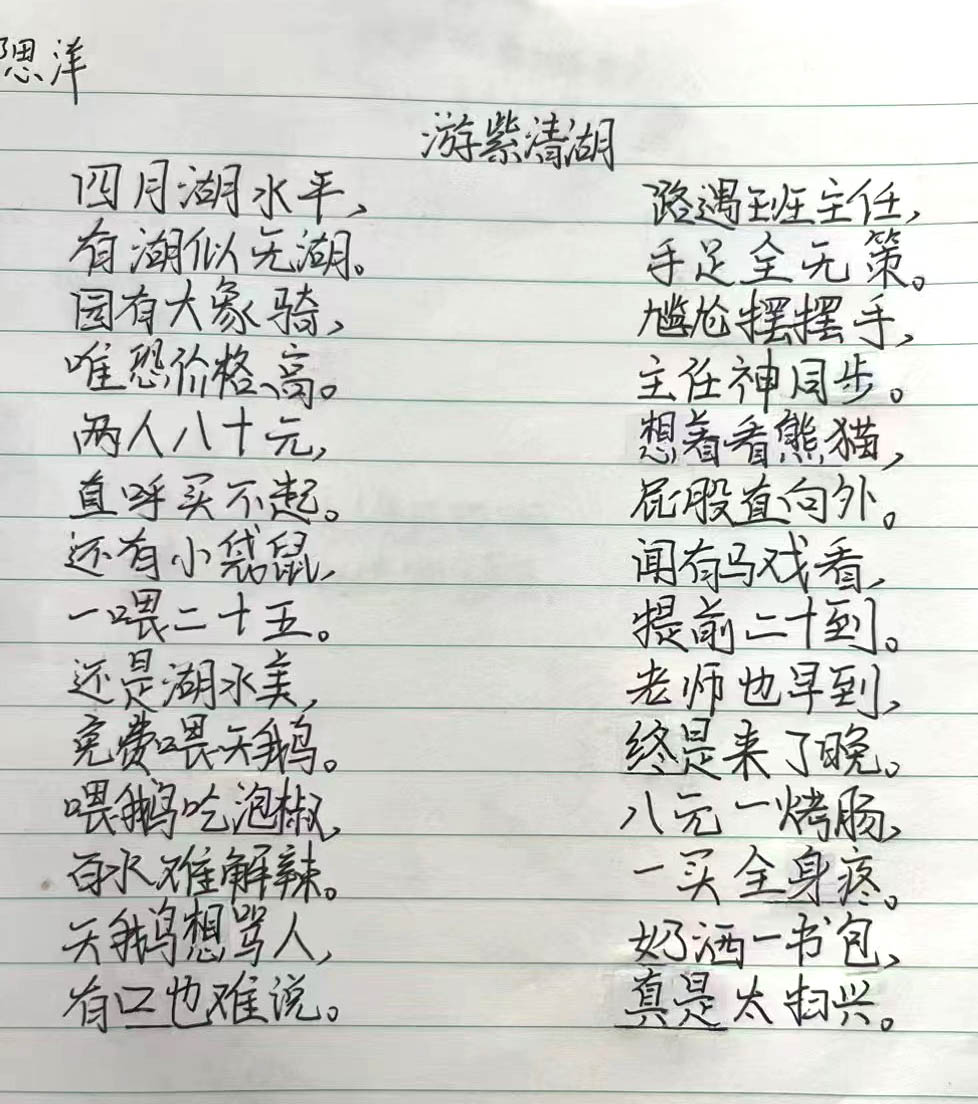 思洋
游紫清湖
四月湖水平，
有湖似无湖。
园有大象骑，
唯恐价格高。
两人八十元，
直呼买不起。
还有小袋鼠，
一喂二十五。
还是湖水美，
免费喂天鹅。
喂鹅吃泡椒，
百水难解辣。
天鹅想骂人，
有口也难说。
路遇班主任，
手足全无策。
尴尬摆摆手，
主任神同步。
想着看熊猫，
屁股直向外。
闻有马戏看，
提前二十到。
老师也早到，
终是来了晚。
八元一烤肠，
一买全身疼。
奶洒一书包，
真是太扫兴。